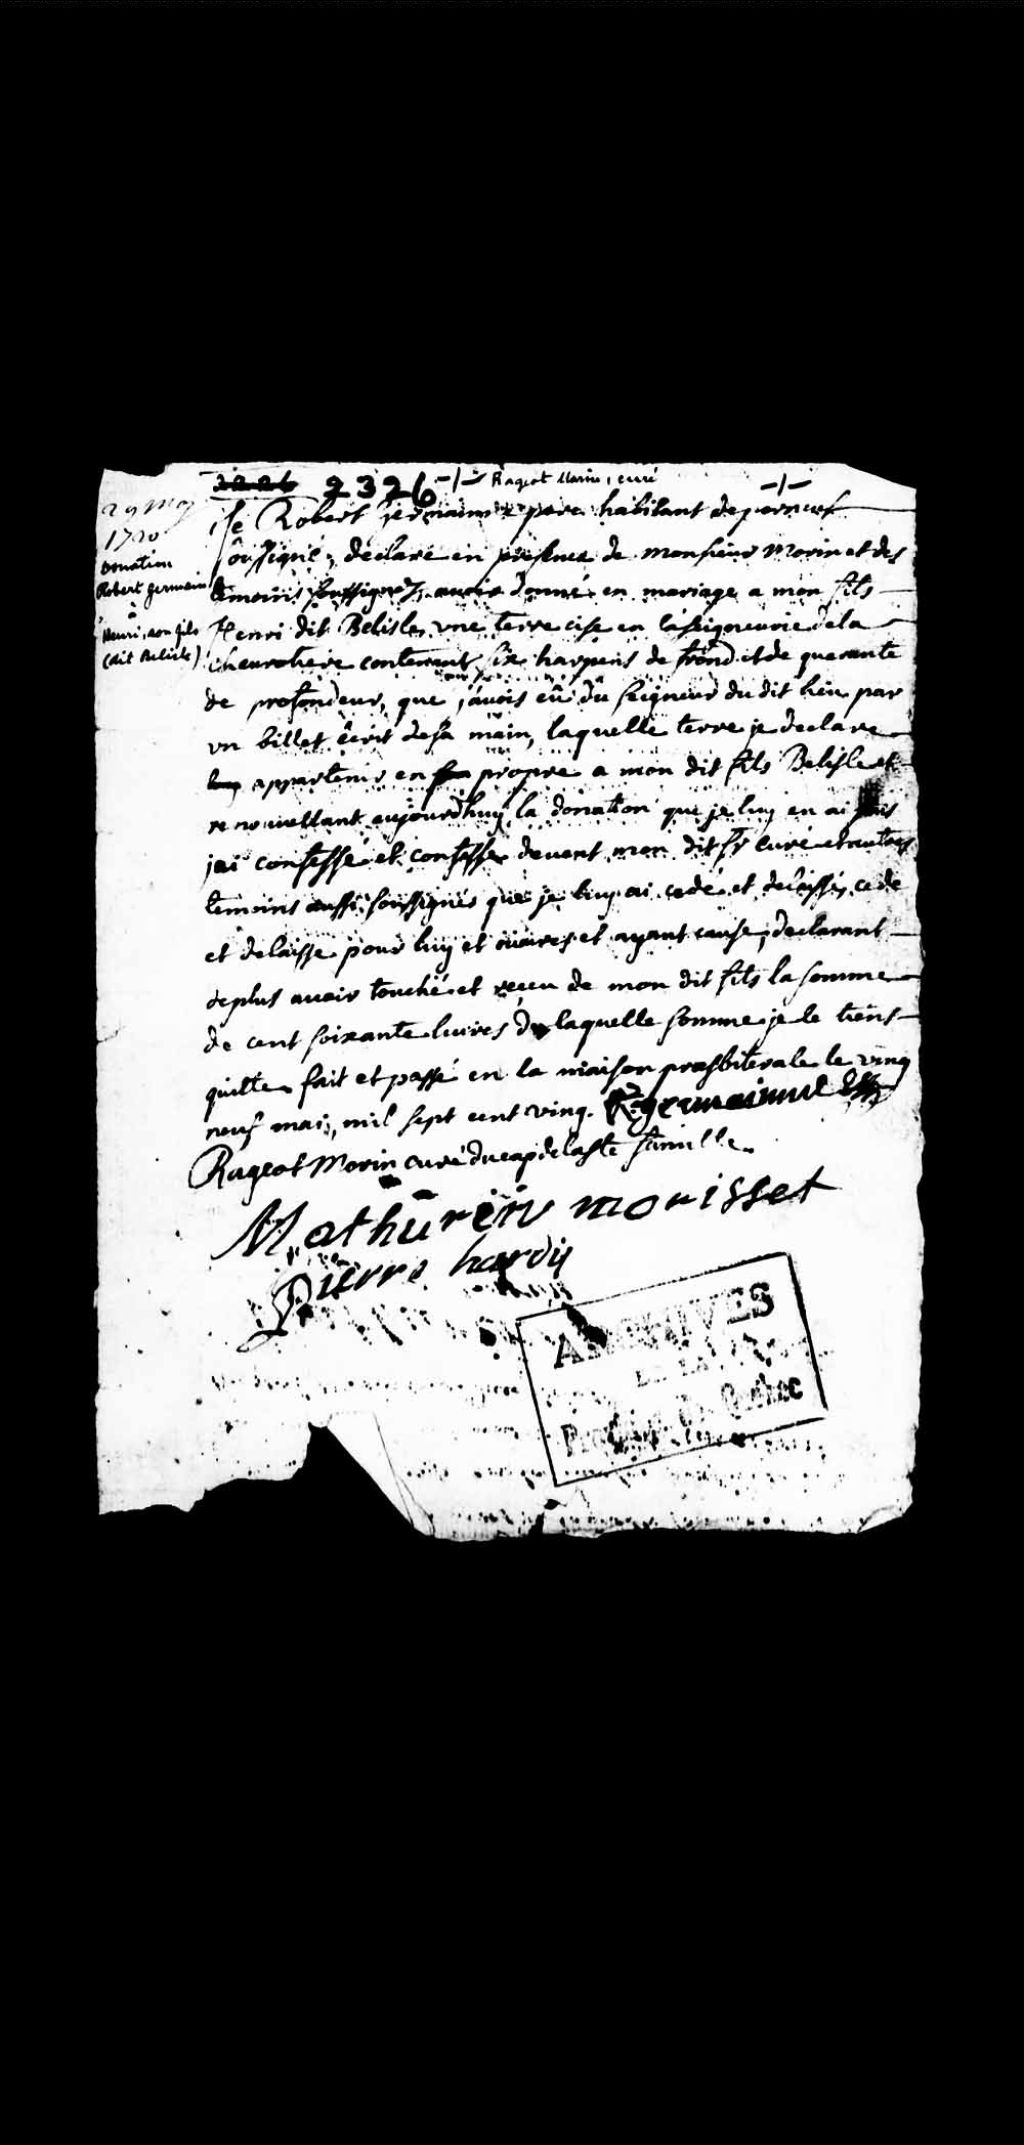 2226 2326 -/- Rageot Morin, curé -/-
29 may
1720
Donation
Robert germain
à
Henri, son fils
(dit Belisle)
Je Robert germain le pere habitant de porneuf
soussigné, declare en presence de monsieur Morin et des
temoins soussignez, avoir donné en mariage a mon fils
Henri dit Belisle, vne terre cise en la seigneurie de la
cheurotiere contenant six harpens de frond et de quarante
de profondeur, que j'auois eû du seigneur du dit lieu par
vn billet écrit de sa main, laquelle terre je declare
appartenir en propre a mon dit fils Belisle et
renouvellant aujourdhuy la donation que je luy en ai
jai confessé et confesse devant mon dit sr curé et autres
temoins aussi soussignés que je luy ai cedé et delaissé, cede
et delaisse pour luy et et ayant cause, declarant
deplus auoir touché et receu de mon dit fils la somme
de cent soixante liures de laquelle somme je le tiens
quitte fait et passé en la maison presbiterale le ving
neuf mai, mil sept cent ving. R. germain
Rageot Morin curé du cap de la ste famille
Mathurin morisset
Pierre hardy
ARCHIVES
DE LA
Province de Québec